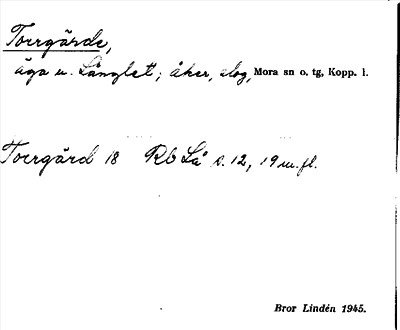 Torrgärde,
äga u. Långlet; åker, skog, Mora sn o. tg, Kopp. l.
Torrgärd 18 Rb Lå s. 12, 19 m.fl.
Bror Lindén 1945.